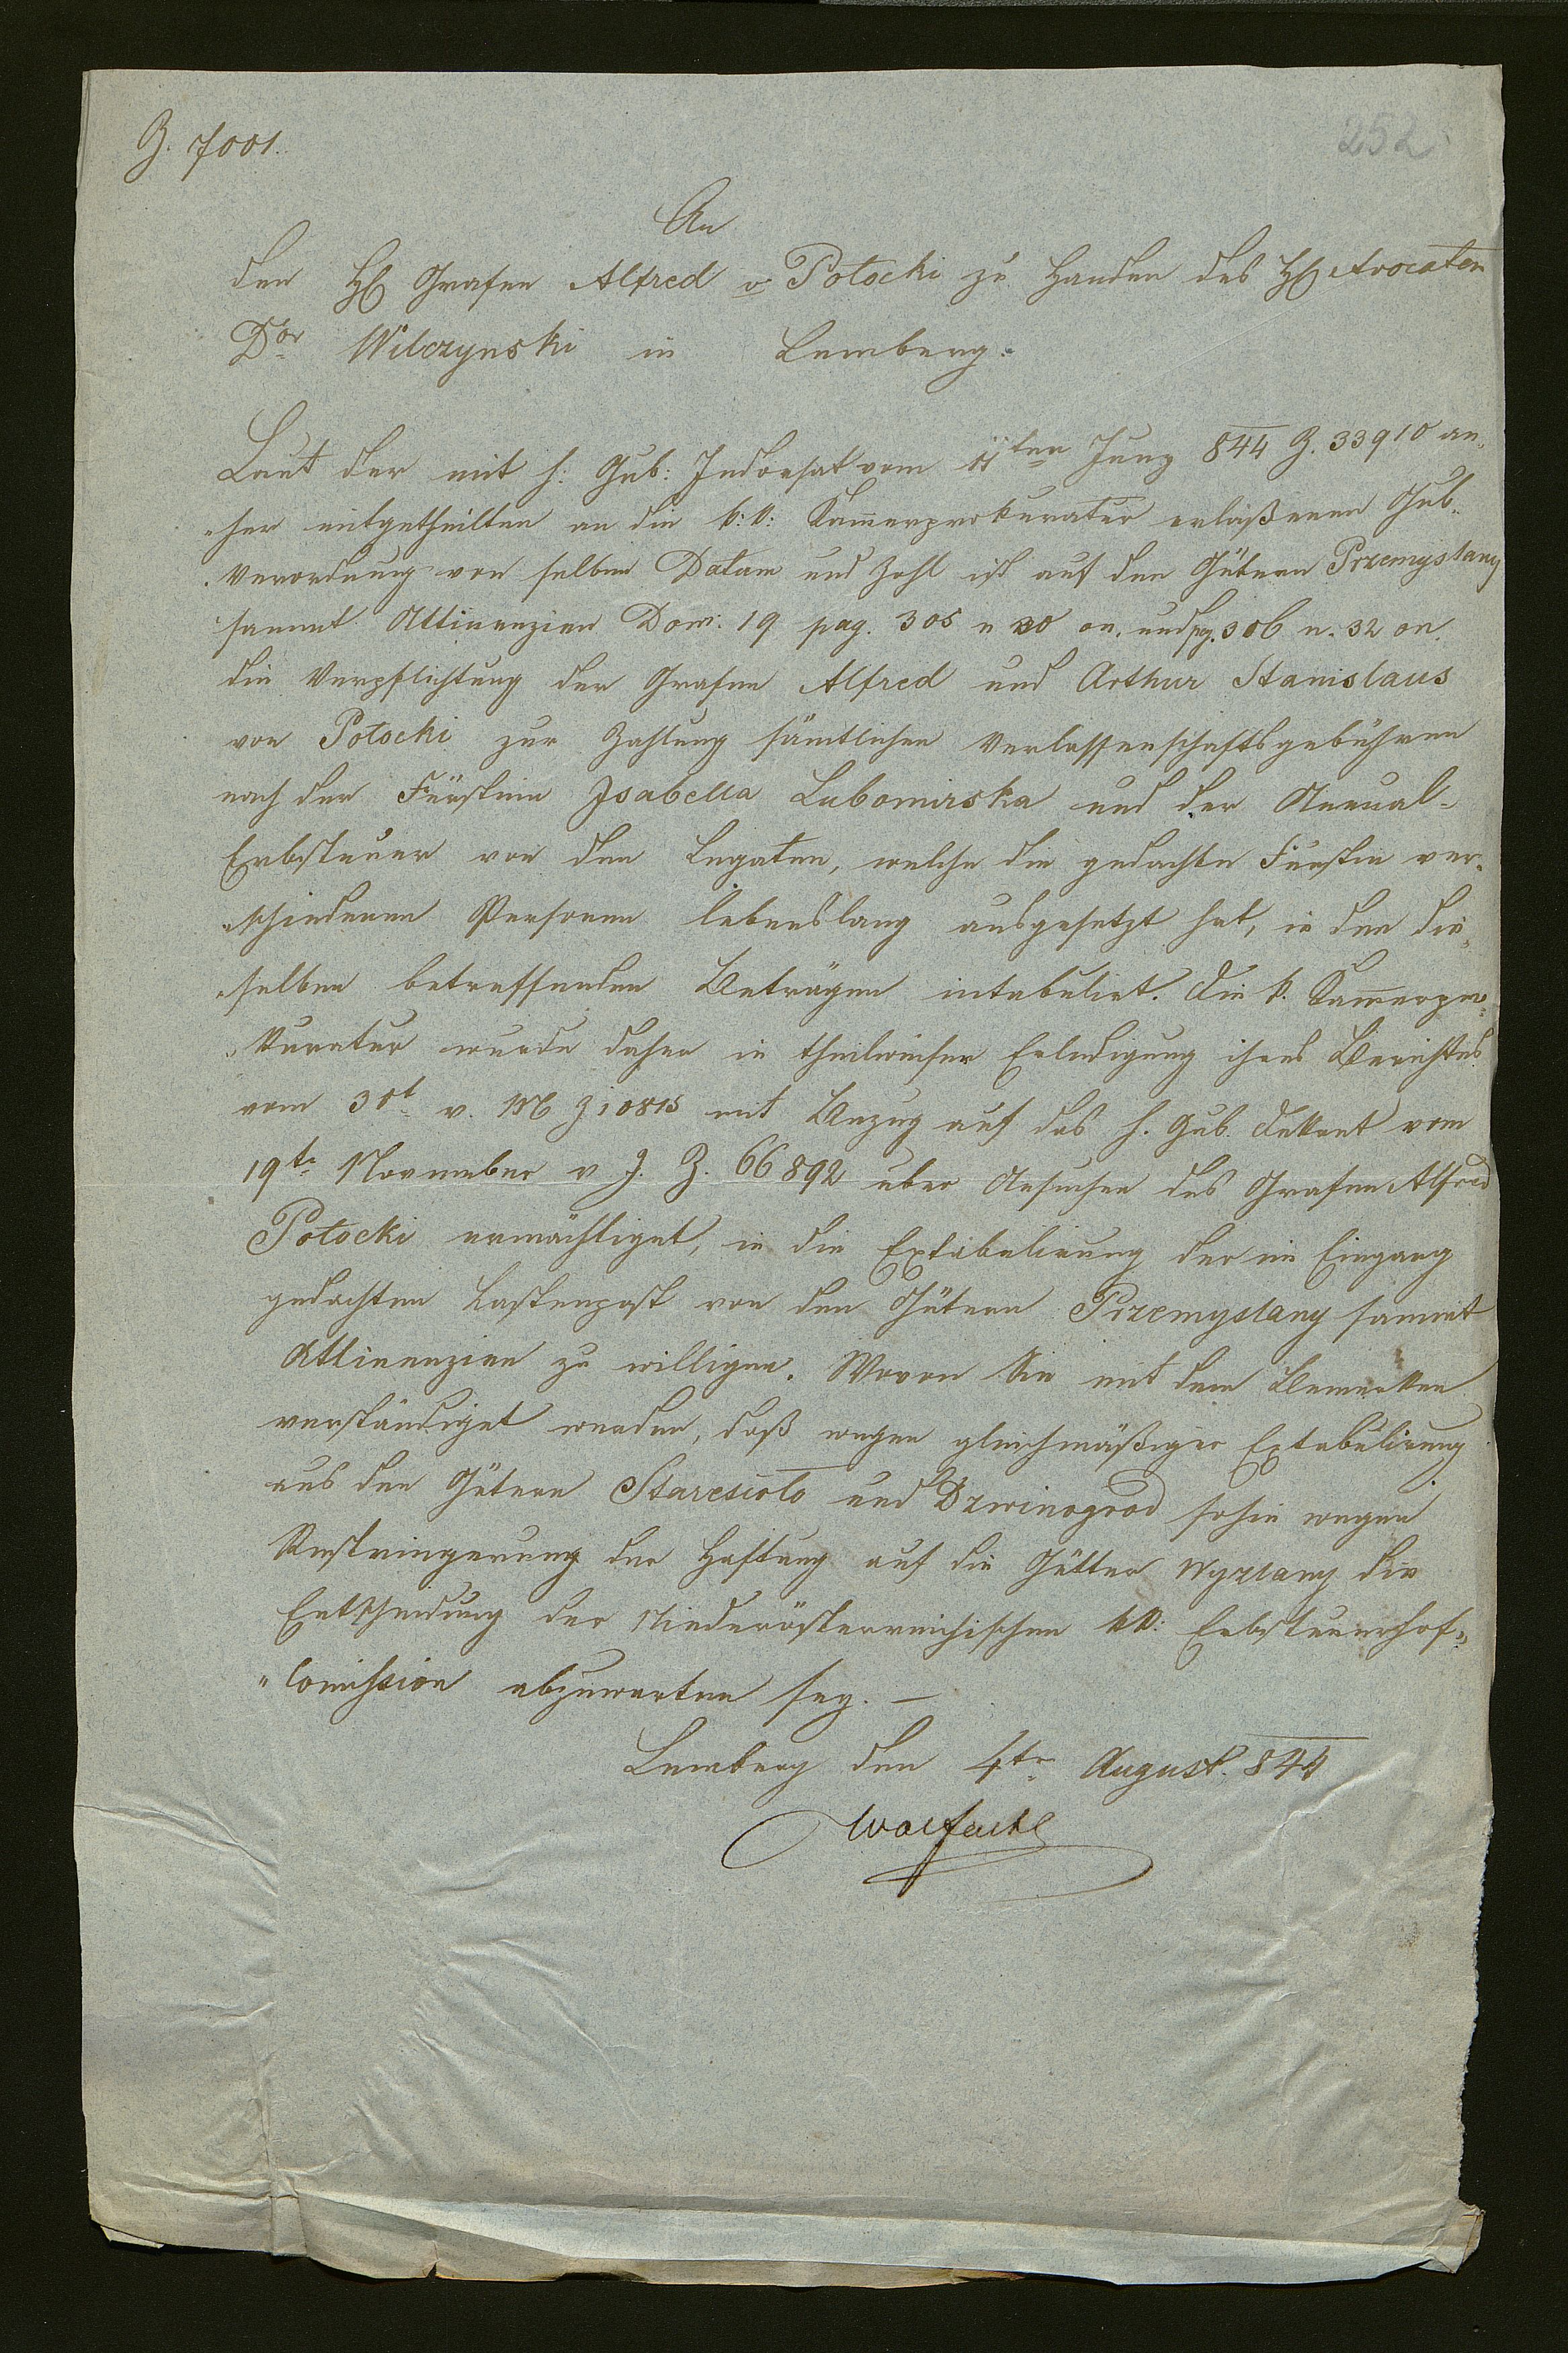 Z. 7001.
252
An
den H Grafen Alfred v. Potocki zu Handen des H Avocaten
Dor Wilczynski in Lemberg.
Laut der mit h: Gub: Indorsat vom 11ten Juny 844 Z. 33910 an„
„her mitgetheilten an die k: k: Kammerprokuratur erlaßenen Gub„
„Verordnung von selben Datam und Zahl ist auf den Gütern Przemyslany
sammt Attinenzien Dom. 19 pag. 305 n 30 on. und pg. 306 n. 32 on.
die Verpflichtung der Grafen Alfred und Arthur Stanislaus
von Potocki zur Zahlung sämtlicher Verlassenschaftsgebühren
nach der Fürstinn Isabella Lubomirska und der Annual-
Erbsteuer von den Legaten, welche die gedachte Fürstin ver„
„schiedenen Personen lebenslang ausgesetzt hat, in den die„
„selben betreffenden Beträgen intabulirt. Die k. Kammerpro„
„kuratur wurde daher in theilweiser Erledigung ihres Berichtes
vom 30t v. M Z 10815 mit Bezug auf das h. Gub. Dekret vom
19te November v J. Z. 66892 über Ansuchen des Grafen Alfred
Potocki ermächtiget, in die Extabulirung der im Eingang
gedachten Lastenpost von den Gütern Przemyslany sammt
Attinenzien zu willigen. Wovon Sie mit dem Bemerken
verständiget werden, daß wegen gleichmäßiger Extabulirung
aus den Gütern Staresioło und Dzwinogrod sohin wegen
Restringerung der Haftung auf die Gütter Wyzlany die
Entscheidung der Niederösterreichischen kk: Erbsteuerhof„
„Comission abzuwarten sey. —
Lemberg den 4te August. 844